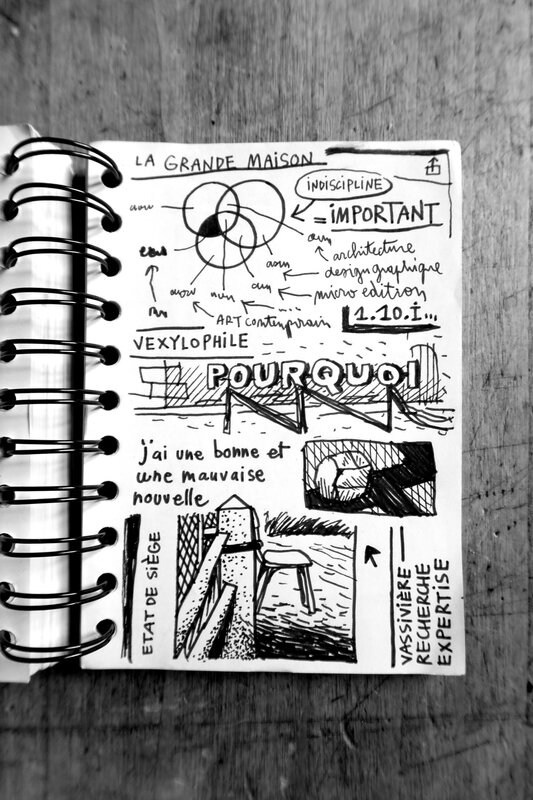 LA GRANDE MAISON
INDISCIPLINE
= IMPORTANT
architecture
design graphique
micro edition
ART contemporain
1.10.I...
VEXYLOPHILE
POURQUOI
j'ai une bonne et
une mauvaise
nouvelle
ETAT DE SIÈGE
VASSIVIÈRE
RECHERCHE
EXPERTISE